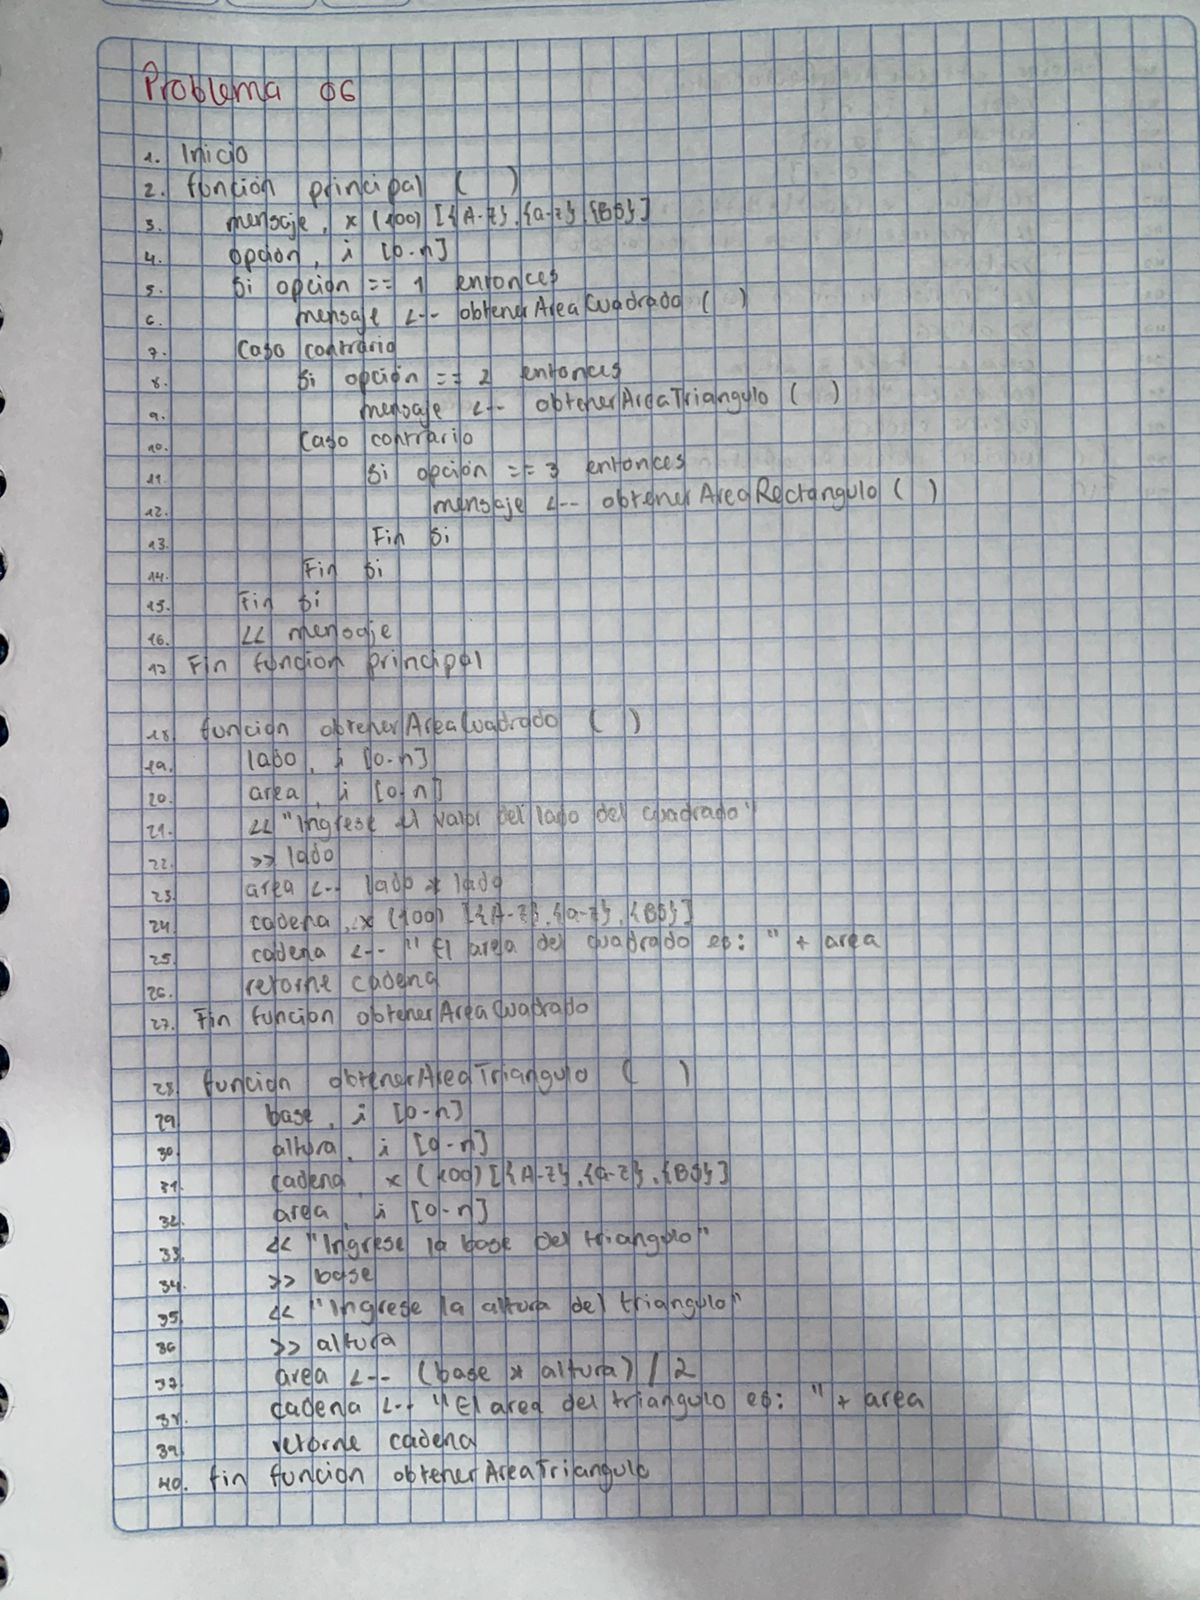 Problema 06
1. Inicio
2. función principal ( )
3. mensaje, x (100) [{A-Z}, {a-z} {BS}]
4. opción, i [0-n]
5. Si opción == 1 entonces
6. mensaje <-- obtenerAreaCuadrado ( )
7. Caso contrario
8. Si opción == 2 entonces
9. mensaje <-- obtenerAreaTriangulo ( )
10. Caso contrario
11. Si opción == 3 entonces
12. mensaje <-- obtenerAreaRectangulo ( )
13. Fin Si
14. Fin Si
15. Fin Si
16. << mensaje
17 Fin funcion principal
18. funcion obtenerAreaCuadrado ( )
19. lado, i [0-n]
20. area, i [0-n]
21. << "Ingrese el valor del lado del cuadrado"
22. >> lado
23. area <-- lado * lado
24. cadena, x (100) [{A-Z}, {a-z}, {BS}]
25. cadena <-- "El area del cuadrado es: " + area
26. retorne cadena
27. Fin función obtenerAreaCuadrado
28. función obtenerAreaTriangulo ( )
29. base, i [0-n]
30. altura, i [0-n]
31. cadena, x (100) [{A-Z}, {a-z}, {BS}]
32. area, i [0-n]
33. << "Ingrese la base del triangulo"
34. >> base
35. << "Ingrese la altura del triangulo"
36 >> altura
37. area <-- (base * altura) / 2
38. cadena <-- "El area del triangulo es: " + area
39. retorne cadena
40. fin funcion obtenerAreaTriangulo